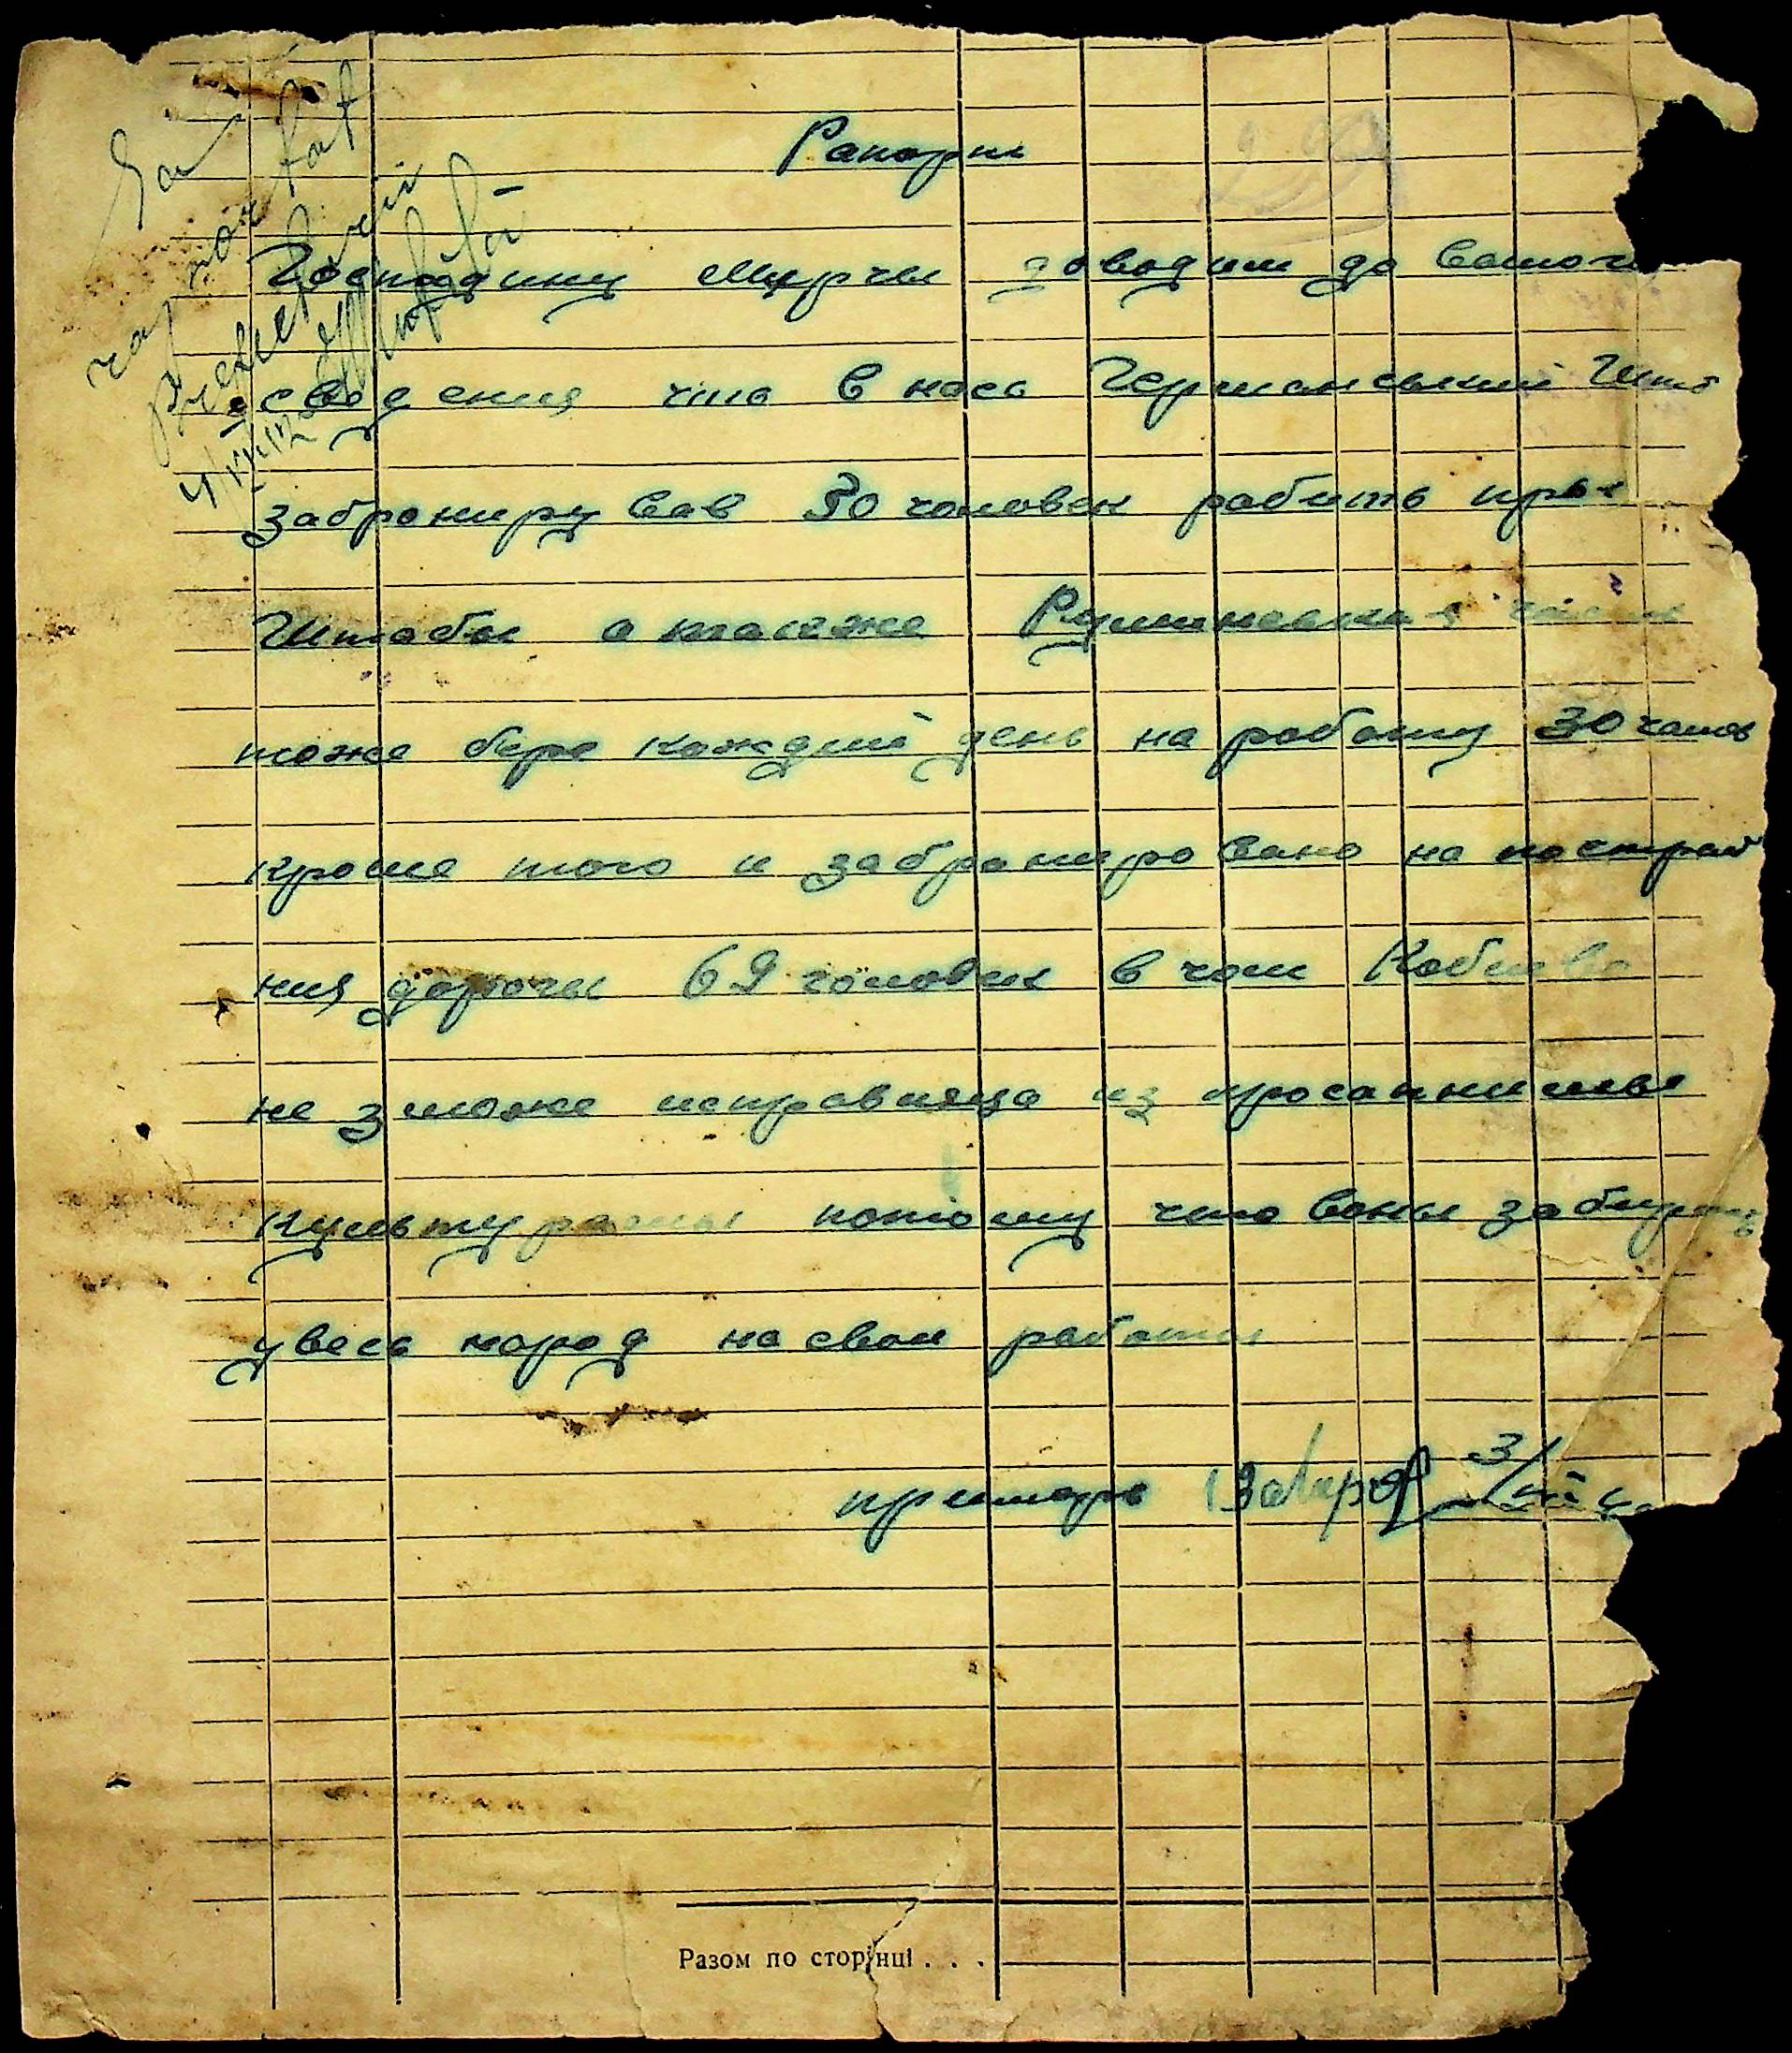 Рапорт
Господину Мурчы доводим до вашого
сведения что в нась Германський Штаб
заброниру вав 30 чоловек работь пры
Штабы а также Румыневская часть
тоже бере каждий день на работу 30 чолов
кроме того и заброниро вано на построй
ния дорогы 69 чоловек в чом Коблево
не зможе исправляца из просапнимы
культурамы потому что воны забирають
увесь народ на свои работы
примарь 3/VII
Разом по сторінці . . .